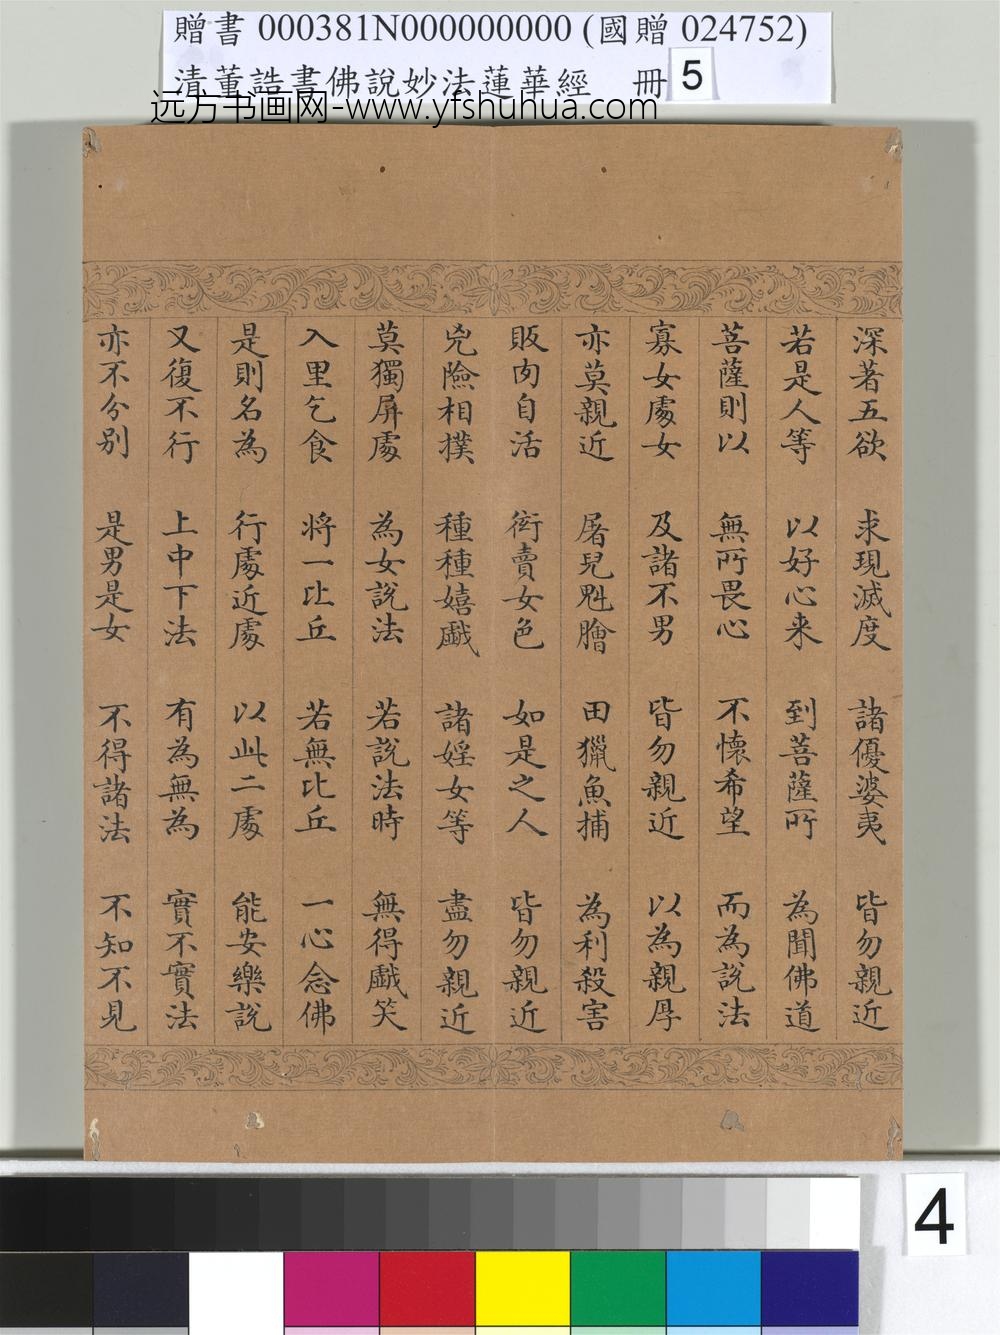 贈書 000381N000000000 (國贈 024752)
清董誥書佛說妙法蓮華經 冊 5
远方书画网-www.yfshuhua.com
深著五欲 求現滅度 諸優婆夷 皆勿親近
若是人等 以好心来 到菩薩所 為聞佛道
菩薩則以 無所畏心 不懷希望 而為說法
寡女處女 及諸不男 皆勿親近 以為親厚
亦莫親近 屠兒魁膾 田獵魚捕 為利殺害
販肉自活 衒賣女色 如是之人 皆勿親近
兇險相撲 種種嬉戲 諸婬女等 盡勿親近
莫獨屏處 為女說法 若說法時 無得戲笑
入里乞食 将一比丘 若無比丘 一心念佛
是則名為 行處近處 以此二處 能安樂說
又復不行 上中下法 有為無為 實不實法
亦不分别 是男是女 不得諸法 不知不見
4